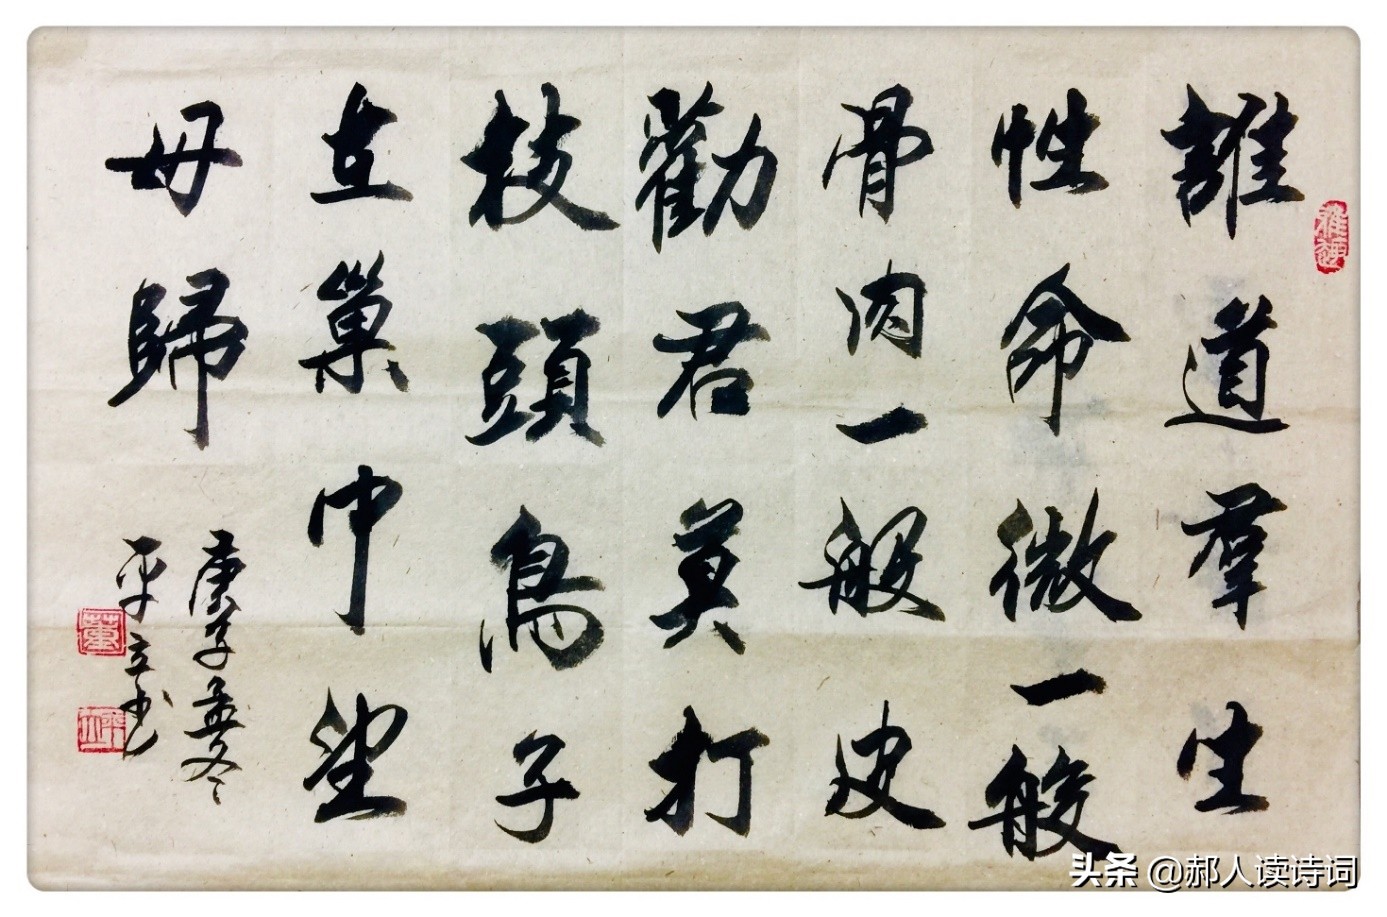 誰道羣生
性命微一般
骨肉一般皮
勸君莫打
枝頭鳥子
在巢中望
母歸
庚子孟冬
平立书
董
头条 @郝人读诗词